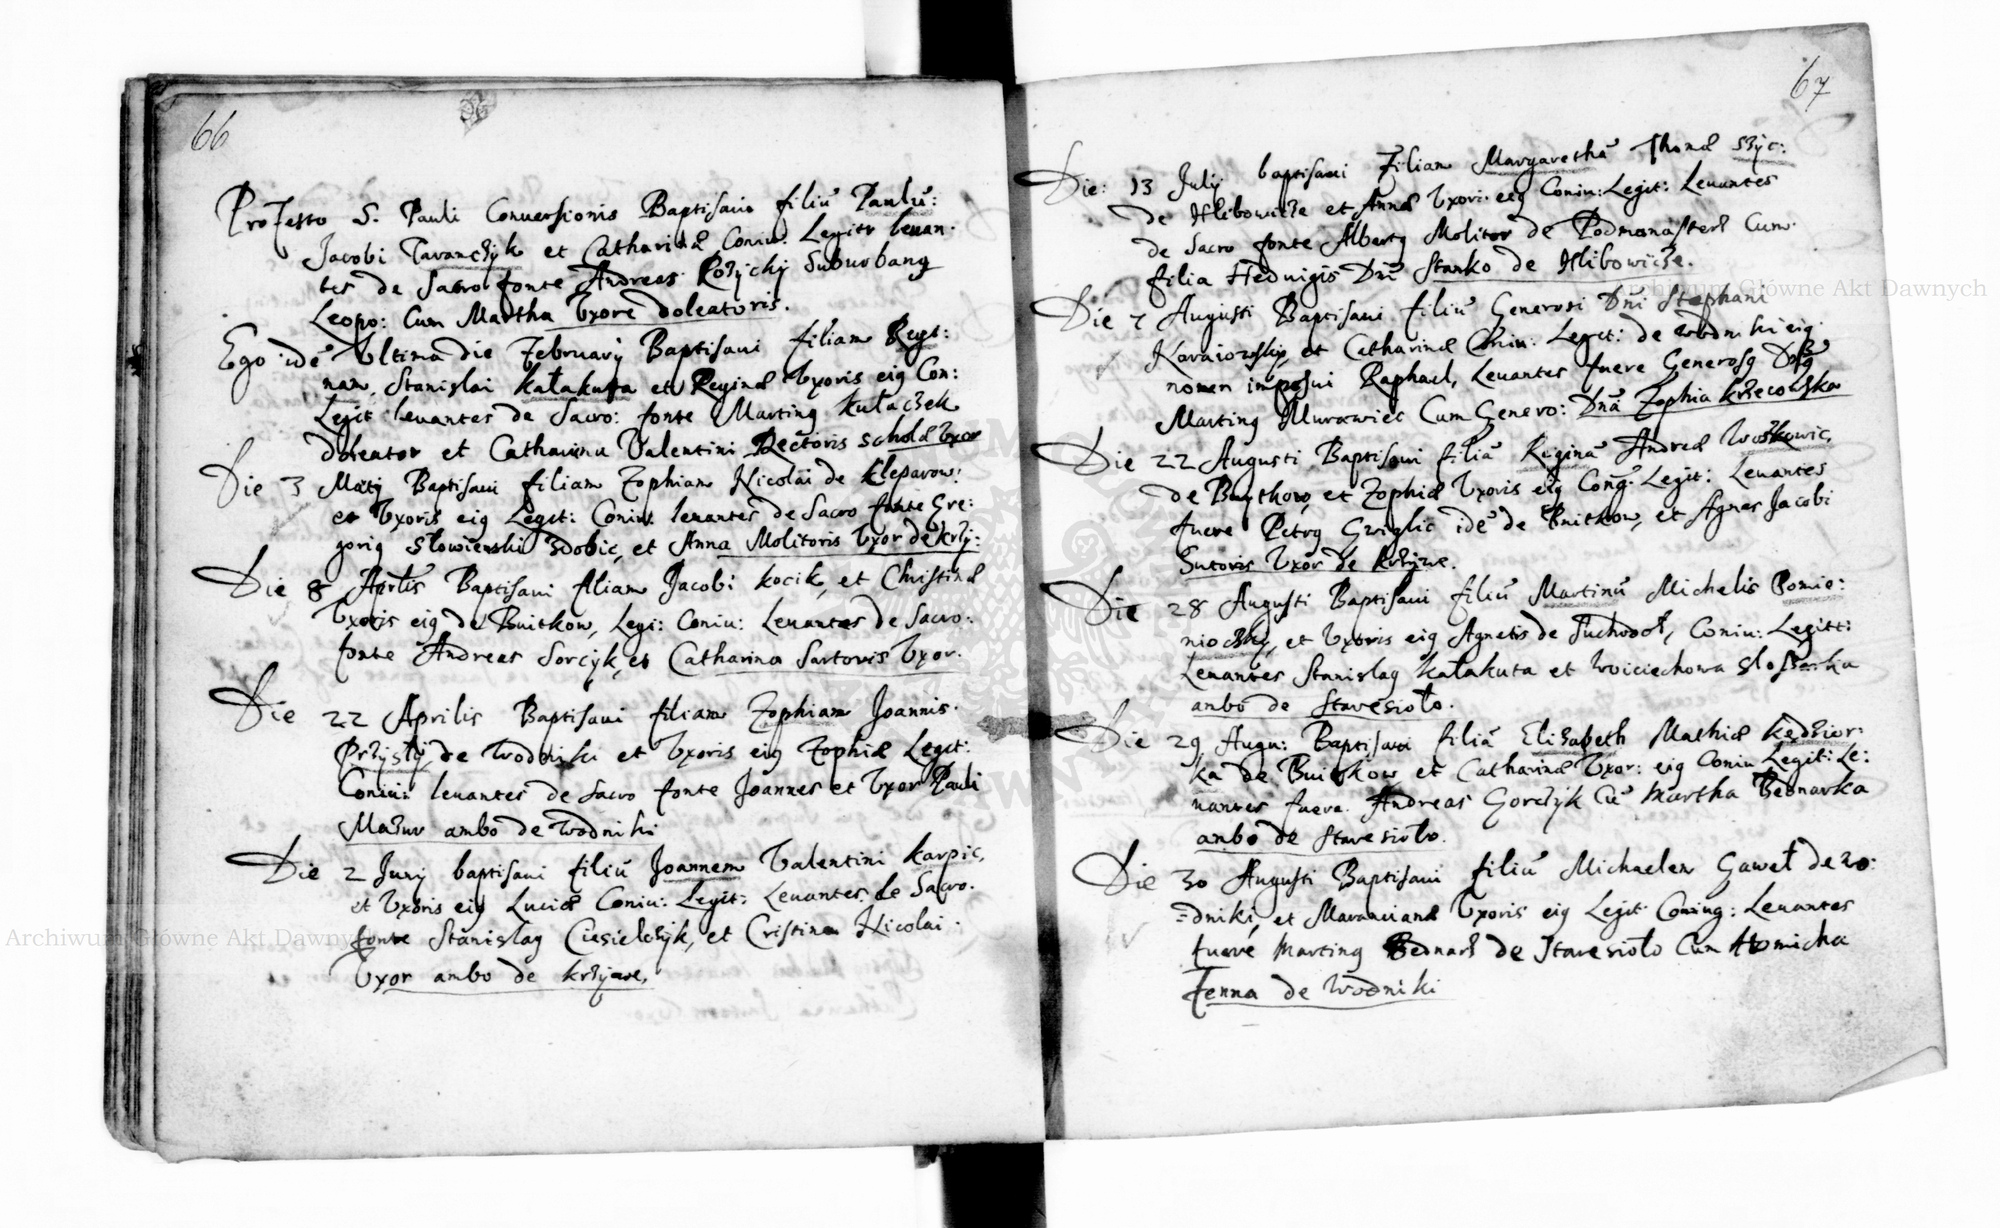 66
Pro Festo S: Pauli Conuersionis Baptisaui filiū Paulū:
Jacobi Taranczyk et Catharinæ Coniu: Legitt leuan:
tes de Sacro fonte Andreas Rożycki Suburbang
Leopo: Cum Martha Vxore doleatoris.
Ego idē Vltima die February Baptisaui filiam Regi:
nam, Stanislai Kałakuta et Reginæ Vxoris eig Con:
Legit leuantes de Sacro: fonte Marting Kułaczek
doleator et Catharina Valentini Rectoris scholæ Vxor
Die 3 Baptisaui filiam Zophiam Nicolai de Kleparow:
et Vxoris eig Legit: Coniu: leuantes de Sacro fonte Gre:
gorig Słowienski Sdobic, et Anna Molitoris Vxor de Krzy:
Die 8 Aprilis Baptisaui filiam Jacobi Kocik, et Christinæ
Vxoris eig de Buitkow, Legi: Coniu: Leuantes de Sacro:
fonte Andreas Sorczyk, et Catharina Sartoris Vxor.
Die 22 Aprilis Baptisaui filiam Zophiam Joannis
Przysły, de Wodniki et Vxoris eig Zophiæ Legit:
Coniu: leuantes de Sacro fonte Joannes et Vxor Pauli
Mazur ambo de Wodniki
Die 2 Juny baptisaui filiū Joannem Valentini Karpic,
et Vxoris eig Luciæ Coniu: Legit: Leuantes de Sacro.
fonte Stanislag Ciesielczyk, et Cristina Nicolai
Vxor ambo de Krzywe,
67
Die: 13 July baptisaui Filiam Margarethā Thomæ Szyc:
de Hlibowicze et Annæ Vxori: eig Coniu: Legit: Leuantes
de Sacro fonte Albertg Molitor de Podmonasterz Cum
filia Heduigis Dni Stanko de Hlibowicze.
Die 7 Augusti Baptisaui filiū Generosi Dni Stephani
et Catharinæ Coniu: Legit: de Wodniki eig
nomen imposui Raphael, Leuantes fuere Generosg
Marting Murawiec Cum Genero: Dnā Zophia Krzecowska
Die 22 Augusti Baptisaui filiā Reginā Andreæ Woskowic,
de Buytkow, et Zophiæ Vxoris eig Cong: Legit: Leuantes
fuere Petrg Gwiglic idē de Buitkow, et Agnes Jacobi
Sutoris Vxor de Krzywe.
Die 28 Augusti Baptisaui filiū Martinū Michelis Pomie:
et Vxoris eig Agnetis de Suchodoł, Coniu: Legitt:
Leuantes Stanislag Kałakuta et Woiciechowa
ambo de Staresioło.
Die 29 Augu: Baptisaui filiā Elizabeth Mathiæ Kędzior:
ka de Buitkow et Catharinæ Vxor: eig Coniu Legit: Le:
uantes fuere. Andreas Gorczyk Cū Martha Bednarka
ambo de Staresioło.
Die 30 Augusti Baptisaui filiū Michaelem Gaweł de Wo:
=dniki, et Maranciannæ Vxoris eig Legit Coniug: Leuantes
fuere Marting Bednarz de Staresioło Cum
Fenna de Wodniki
Archiwum Główne Akt Dawnych
Archiwum Główne Akt Dawnych